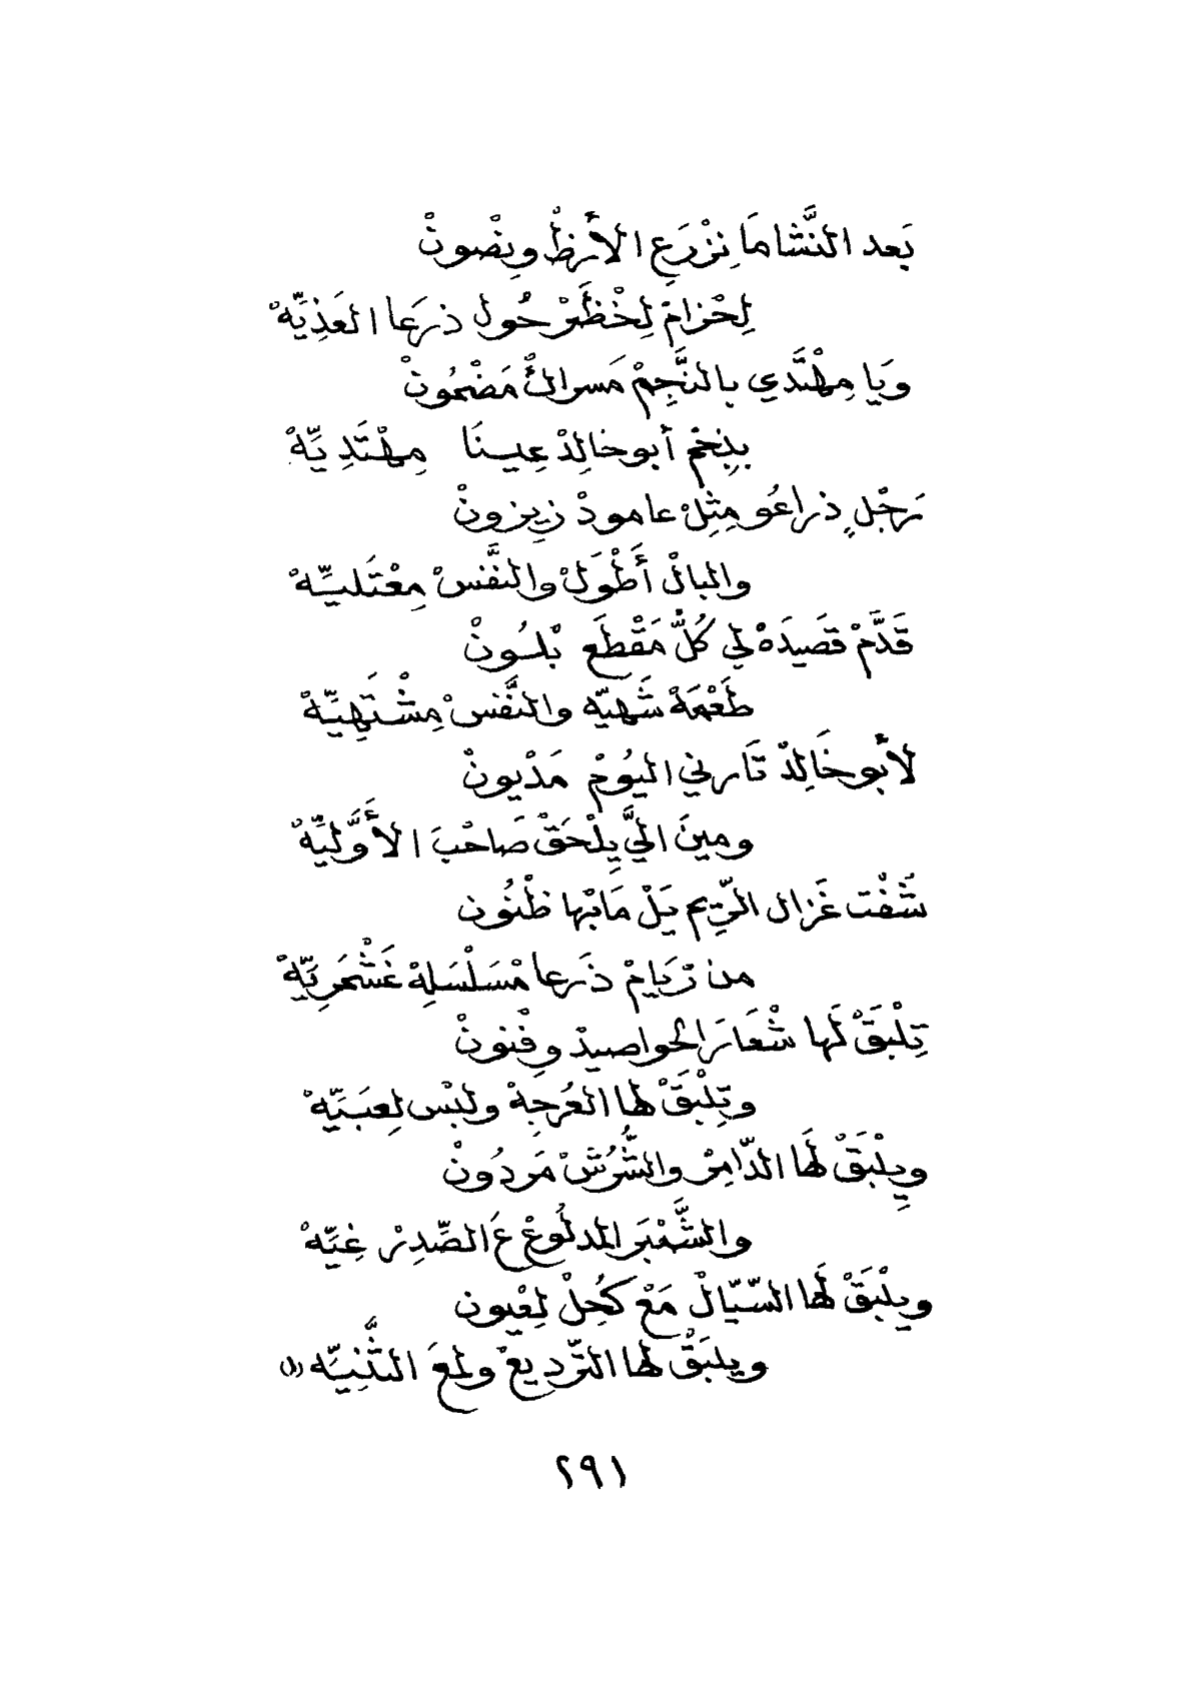 بَعد النَّشامَا نِزْرَعِ الأَرظْ ونِصْونْ
لِحْزامْ لِخْظَرْ حُول ذرعَا العَذِيِّهْ
ويَا مِهْتَدي بالنَّجِمْ مَسراكْ مَضْمُونْ
بنِجْم أبو خالِدْ عِينَا مِهْتَدِيِّهْ
رَجْلٍ ذراعُو مِثِلْ عامودْ زيزونْ
والبالْ أَطْوَلْ والنَّفسْ مِعْتَليِّهْ
قَدَّمْ قَصَيدَهْ لي كُلّْ مَقْطَع بْلَونْ
طَعْمَهْ شَهيّه والنَّفسْ مِشْتَهِيِّهْ
لأبو خَالِدْ تَارني اليُومْ مَدْيونْ
ومينَ اليَّ يِلْحَقْ صَاحْبَ الأَوَّليِّهْ
شَفْت غَزال الرِّيم يَلْ مَابْها ظْنُون
من رْيَامْ ذَرعا مْسَلْسَلِهْ غَشْمَرِيِّهْ
تِلْبَقْ لَها شْعَارَ الحواصيدْ وفْنونْ
وتِلْبَقْ لها العُرجِهْ ولبْس لِعبَيِّهْ
ويِلْبَقْ لَها الدّامِرْ والشُّرُشْ مَردُونْ
والشَّمْبَر المدلُوعْ عَ الصِّدِرْ غِيِّهْ
ويلْبَقْ لَها السّيّالْ مَعْ كُحِلْ لِعْيون
ويلبَقْ لها التّرديعْ ولمعَ الثَّنِيِّه (١)
٢٩١